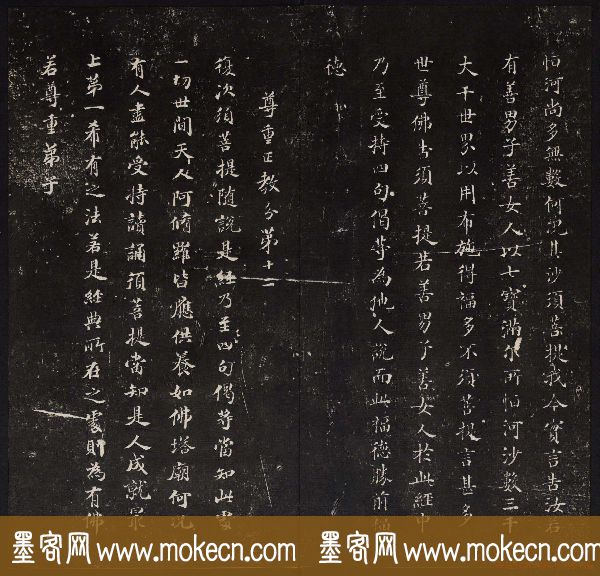 恒河尚多無數何況其沙須菩提我今實言告汝若
有善男子善女人以七寶滿尔所恒河沙數三千
大千世界以用布施得福多不須菩提言甚多
世尊佛告須菩提若善男子善女人於此經中
乃至受持四句偈等為他人說而此福德勝前福
德
尊重正教分第十二
復次須菩提隨說是經乃至四句偈等當知此處
一切世間天人阿脩羅皆應供養如佛塔廟何況
有人盡能受持讀誦須菩提當知是人成就最
上第一希有之法若是經典所在之處則為有佛
若尊重弟子
墨客网 www.mokecn.com 墨客网 www.mokecn.com